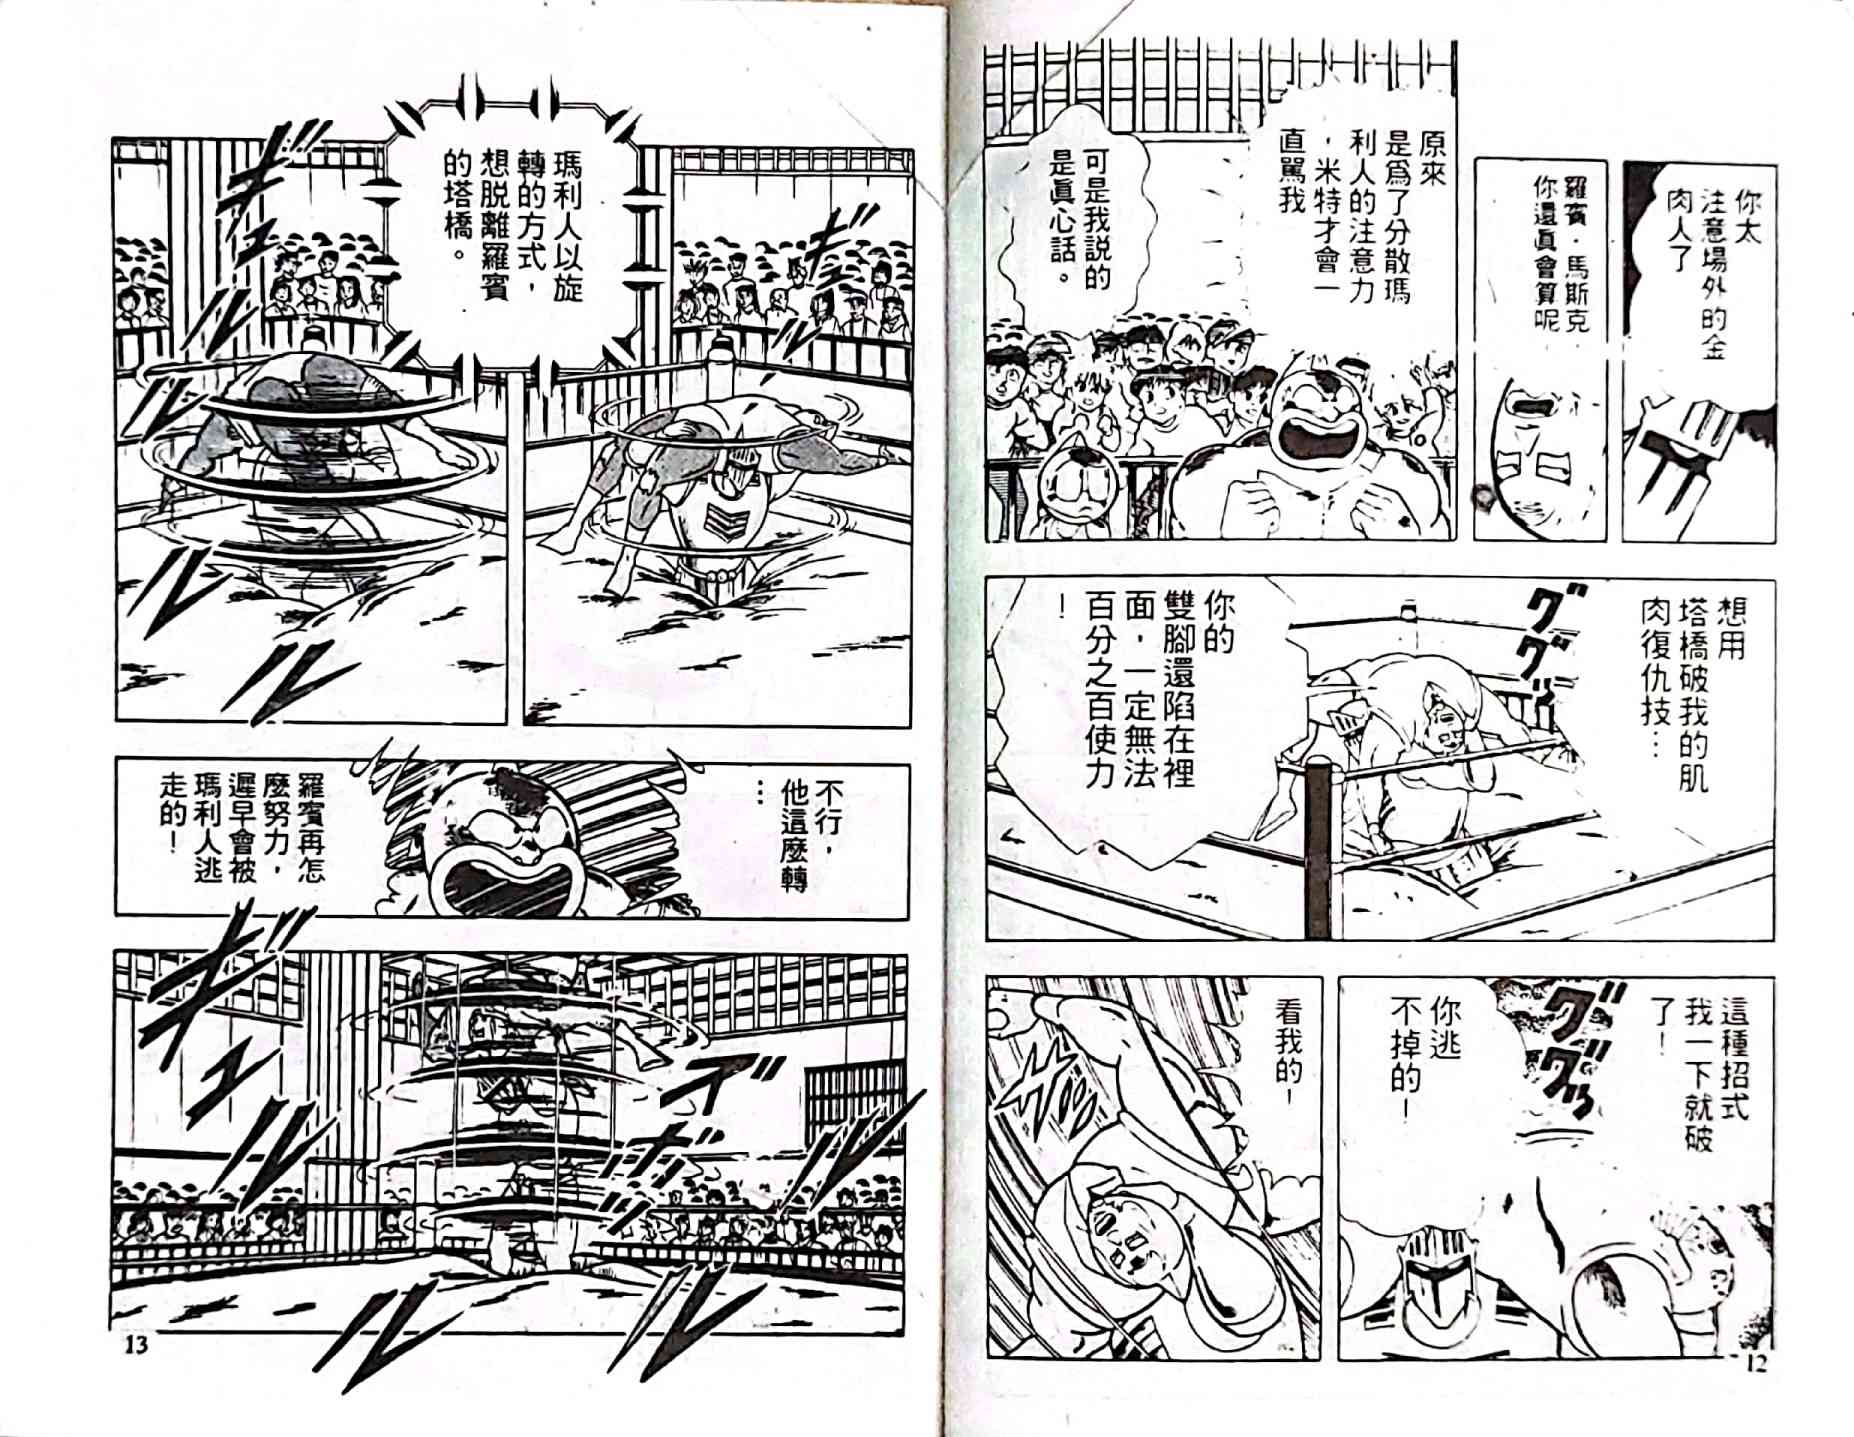 你太
注意場外的金
肉人了
羅賓·馬斯克
你還真會算呢
原來
是爲了分散瑪
利人的注意力
，米特才會一
直罵我
可是我説的
是眞心話。
想用
塔橋破我的肌
肉復仇技…
ググググ
你的
雙腳還陷在裡
面，一定無法
百分之百使力
！
這種招式
我一下就破
了！
ググググ
你逃
不掉的！
看我的！
12
瑪利人以旋
轉的方式，
想脫離羅賓
的塔橋。
ギュルル
ギュルルル
不行，
他這麼轉
…
羅賓再怎
麼努力，
遲早會被
瑪利人逃
走的！
ギュルルルルル
13